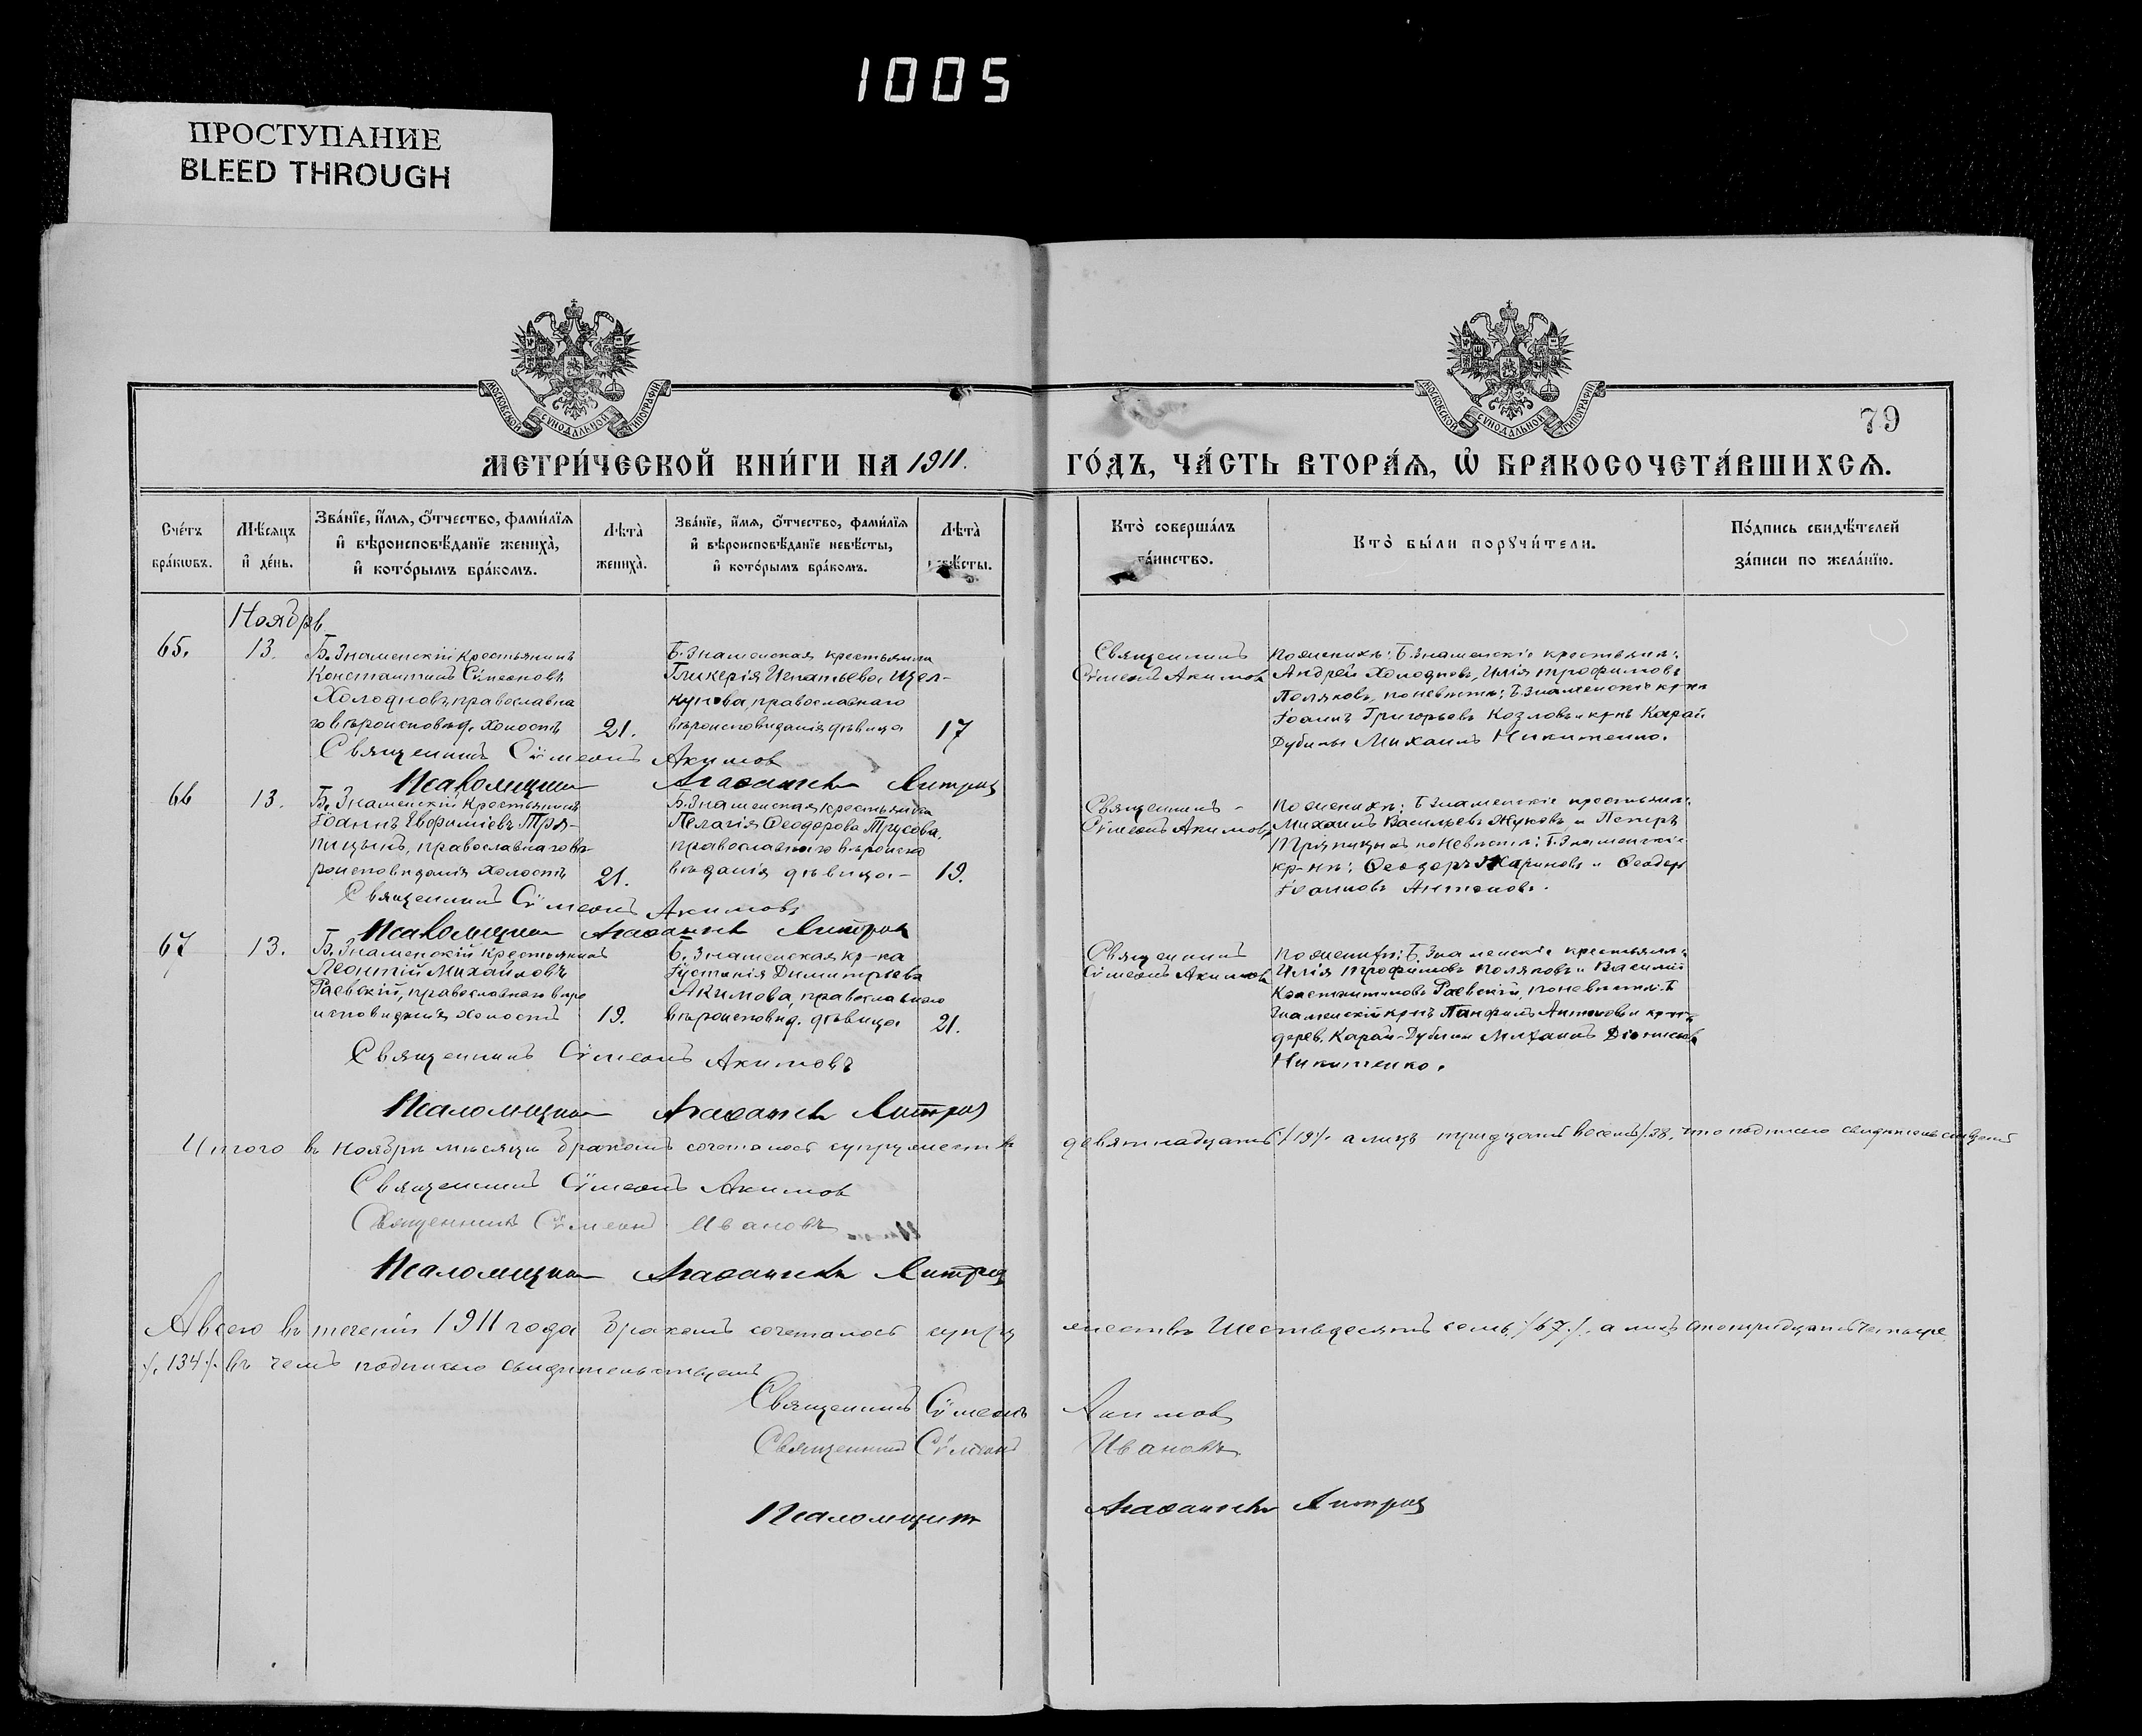 1005
ПРОСТУПАНИЕ
BLEED THROUGH
МОСКОВСКОЙ СѴНОДАЛЬНОЙ ТИПОГРАФІИ
МОСКОВСКОЙ СѴНОДАЛЬНОЙ ТИПОГРАФІИ
79
МЕТРИ́ЧЕСКОЙ КНИ́ГИ НА 1911.
ГО́ДЪ, ЧА́СТЬ ВТОРА́Ѧ, Ѡ҆ БРАКОСОЧЕТА́ВШИХСѦ.
Сче́тъ бра́кѡвъ.
Мѣ́сѧцъ и҆ де́нь.
Зва́нїе, и҆́мѧ, ѻ҆́тчество, фами́лїѧ и҆ вѣроисповѣ́данїе жениха̀, и҆ кото́рымъ бра́комъ.
Лѣта̀ жениха̀.
Зва́нїе, и҆́мѧ, ѻ҆́тчество, фами́лїѧ и҆ вѣроисповѣ́данїе невѣ́сты, и҆ кото́рымъ бра́комъ.
Лѣта̀ невѣ́сты.
Кто̀ соверша́лъ та́инство.
Кто̀ бы́ли порꙋчи́тели.
По́дпись свидѣ́телей за́писи по жела́нїю.
Ноябрь
65.
13.
Б. Знаменскій крестьянинъ
Константинъ Сѵмеоновъ
Холодновъ, православна
го вѣроисповѣд. холостъ
21.
Б. Знаменская крестьянка
Гликерія Игнатьева Щел-
кунова, православнаго
вѣроисповѣданія дѣвица
17
Священникъ
Сѵмеонъ Акимов
По женихѣ: Б. Знаменскіе крестьяне:
Андрей Холодновъ, Илія Трофимовъ
Поляковъ, по невѣстѣ: Б Знаменскіе кр-нъ
Іоаннъ Григорьевъ Козловъ и кр-нъ Карай
Дубины Михаилъ Никитенко.
Священникъ Сѵмеонъ Акимов
Псаломщикъ Дмитрій
66
13.
Б. Знаменскій крестьянинъ
Іоаннъ Евфиміевъ Тря-
пицынъ, православнаго вѣ-
роисповѣданія холостъ
21.
Б. Знаменская крестьянка
Пелагія Ѳеодорова Трусова,
православнаго вѣроиспо
вѣданія дѣвица-
19.
Священникъ -
Сѵмеонъ Акимовъ
По женихѣ: Б Знаменскіе крестьян:
Михаилъ Васильевъ Жуковъ и Петръ
Тряпицынъ по невѣстѣ: Б. Знаменскіе
кр-нъ: Ѳеодоръ Жариновъ и Ѳеодоръ
Іоанновъ Антоновъ.
Священникъ Сѵмеонъ Акимовъ
Псаломщикъ Дмитрій
67
13.
Б. Знаменскій крестьянинъ
Леонтій Михайловъ
Раевскій, православнаго вѣро
исповѣданія холостъ
19.
Б. Знаменская кр-ка
Іустинія Димитріева
Акимова, православнаго
вѣроисповѣд. дѣвица
21.
Священникъ
Сѵмеонъ Акимов
По женихѣ: Б. Знаменскіе крестьян:
Илія Трофимовъ Поляковъ и Василій
Константиновъ Раевскій, по невѣстѣ: Б
Знаменскій кр-нъ Панфилъ Антоновъ и кр-нъ
дерев. Карай-Дубины Михаилъ Діонисіевъ
Никитенко.
Священникъ Сѵмеонъ Акимовъ
Псаломщикъ Дмитрій
Итого въ ноябрѣ мѣсяцѣ бракомъ сочеталось супружествъ девятнадцать /19/. а лицъ тридцать восемь /.38. что подписью свидѣтельствуемъ
Священникъ Сѵмеонъ Акимов
Священникъ Сѵмеонъ Ивановъ
Псаломщикъ Дмитрій
А всего въ теченіи 1911 года бракомъ сочеталось супружествъ шестьдесятъ семь /.67./. а лицъ сто тридцать четыре
/.134/. въ чемъ подписью свидѣтельствуемъ
Священникъ Сѵмеонъ Акимовъ
Священникъ Сѵмеонъ Ивановъ
Псаломщикъ Дмитрій